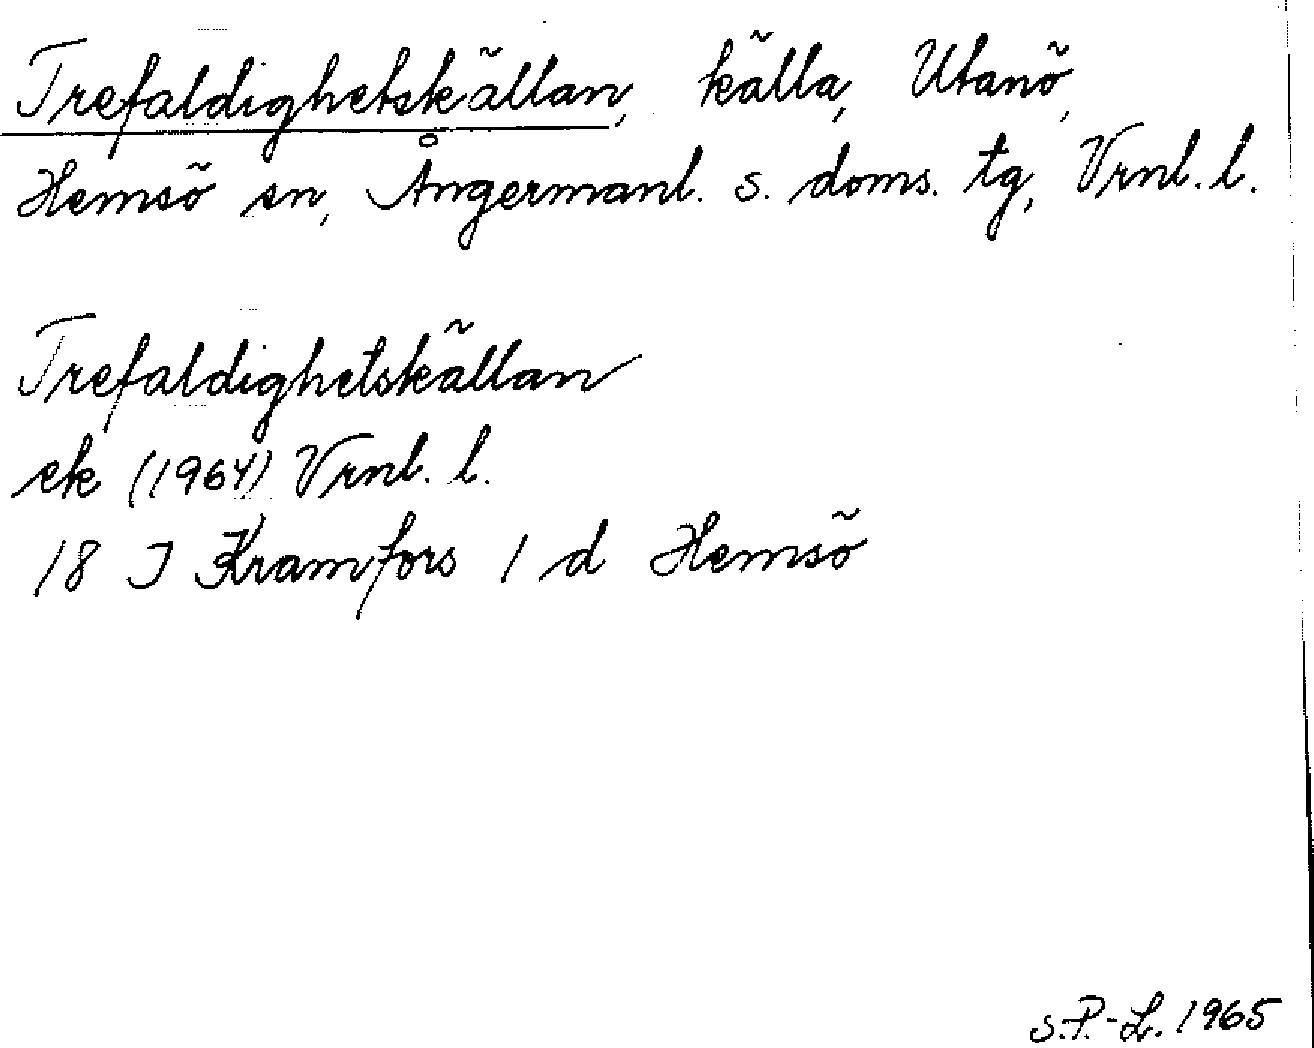 Trefaldighetskällan, källa, Utanö,
Hemsö sn, Ångermanl. s. doms. tg, Vrnl. l.
Trefaldighetskällan
ek (1964) Vrnl. l.
18 I Kramfors 1 d Hemsö
S.P.-L. 1965